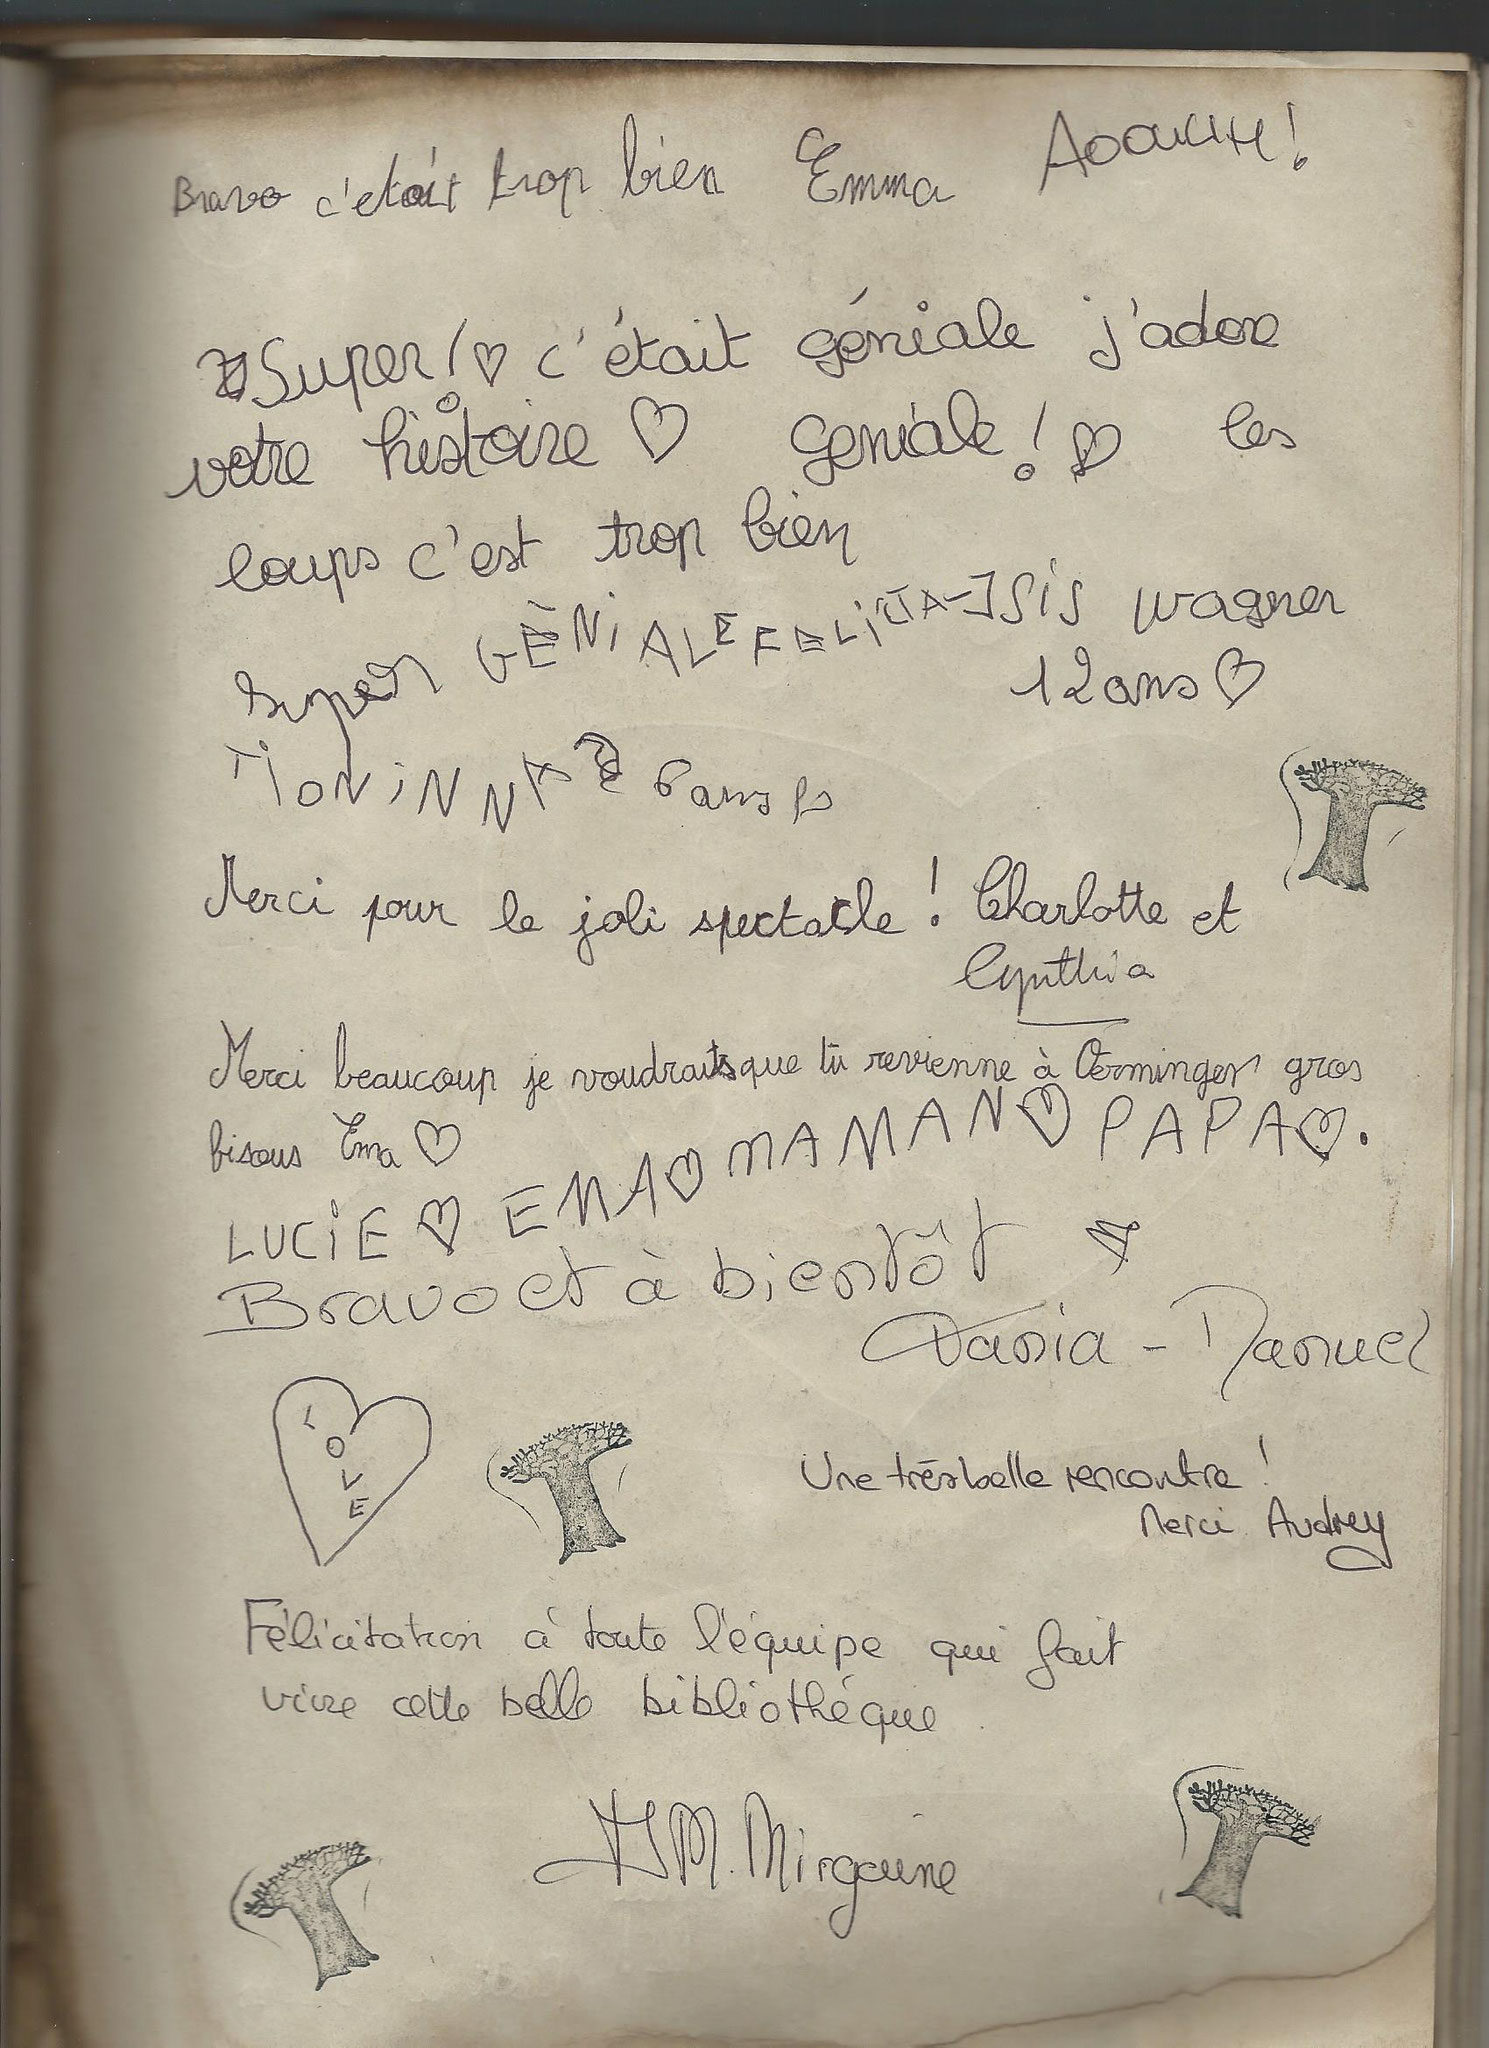 Bravo c'était trop bien Emma Aoouuh!
Super! ♡ c'était géniale j'adore
votre histoire ♡ géniale! ♡ les
loups c'est trop bien
super GÈNiALE FELiCiTA-ISiS wagner
12 ans ♡
6 ans
Merci pour le joli spectacle! Charlotte et
Cynthia
Merci beaucoup je voudrais que tu revienne à Oerminger gros
bisous Ema ♡
LUCiE ♡ EMA ♡ MAMAN ♡ PAPA ♡.
Bravo et à bientôt
Tania - Manuel
LOVE
Une trés belle rencontre!
Merci Audrey
Félicitation à toute l'équipe qui fait
vivre cette belle bibliothéque.
JM. Mirgaine